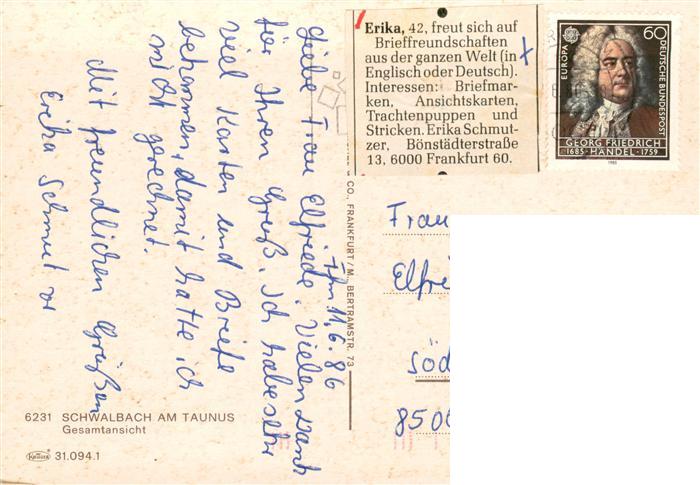 Ffm 11.6.86
Liebe Frau Elfriede. Vielen Dank
für Ihren Gruß. Ich habe sehr
viel Karten und Briefe
bekommen, damit hatte ich
nicht gerechnet.
Mit freundlichen Grüßen
Erika Schmutzer
Erika, 42, freut sich auf
Brieffreundschaften
aus der ganzen Welt (in
Englisch oder Deutsch).
Interessen: Briefmar-
ken, Ansichtskarten,
Trachtenpuppen und
Stricken. Erika Schmut-
zer, Bönstädterstraße
13, 6000 Frankfurt 60.
EUROPA
60
DEUTSCHE BUNDESPOST
GEORG FRIEDRICH
1685 HÄNDEL 1759
1985
& CO., FRANKFURT/M., BERTRAMSTR. 73
Frau
Elfri
Söd
8500
6231 SCHWALBACH AM TAUNUS
Gesamtansicht
31.094.1